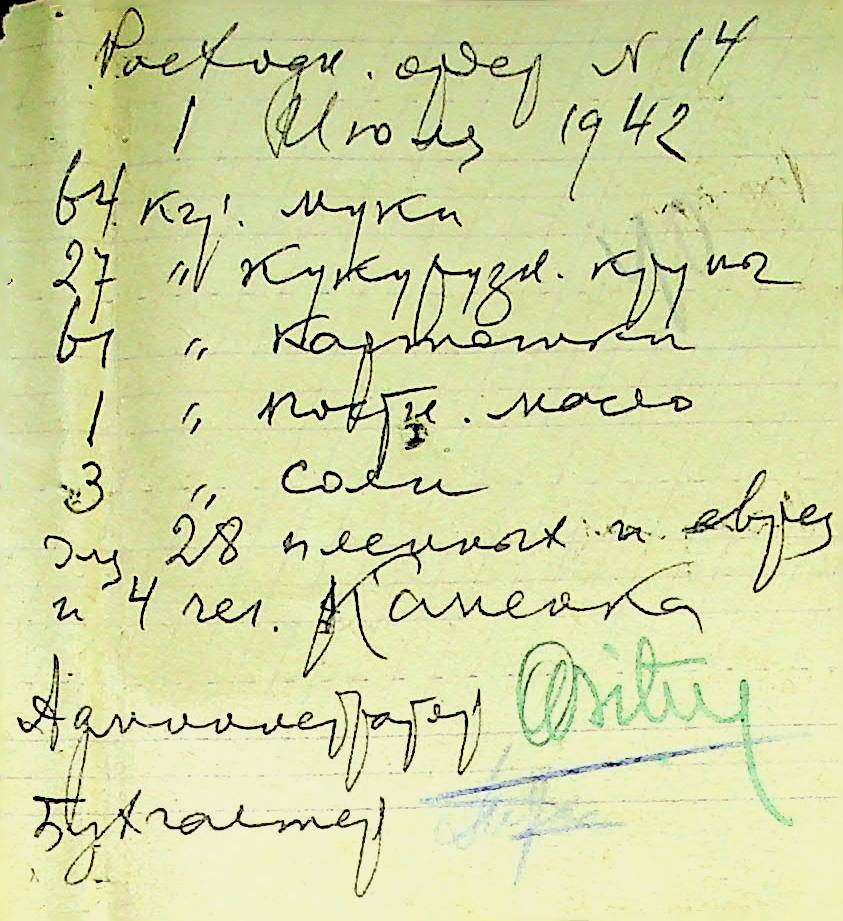 Расходн. ордер N 14
1 Июля 1942
64 кгр. муки
27 " Кукурузн. крупы
61 " картошки
1 " постн. масло
3 " соли
для 28 пленных и евреев
и 4 чел. Каменка
Администратор
Бухгалтер